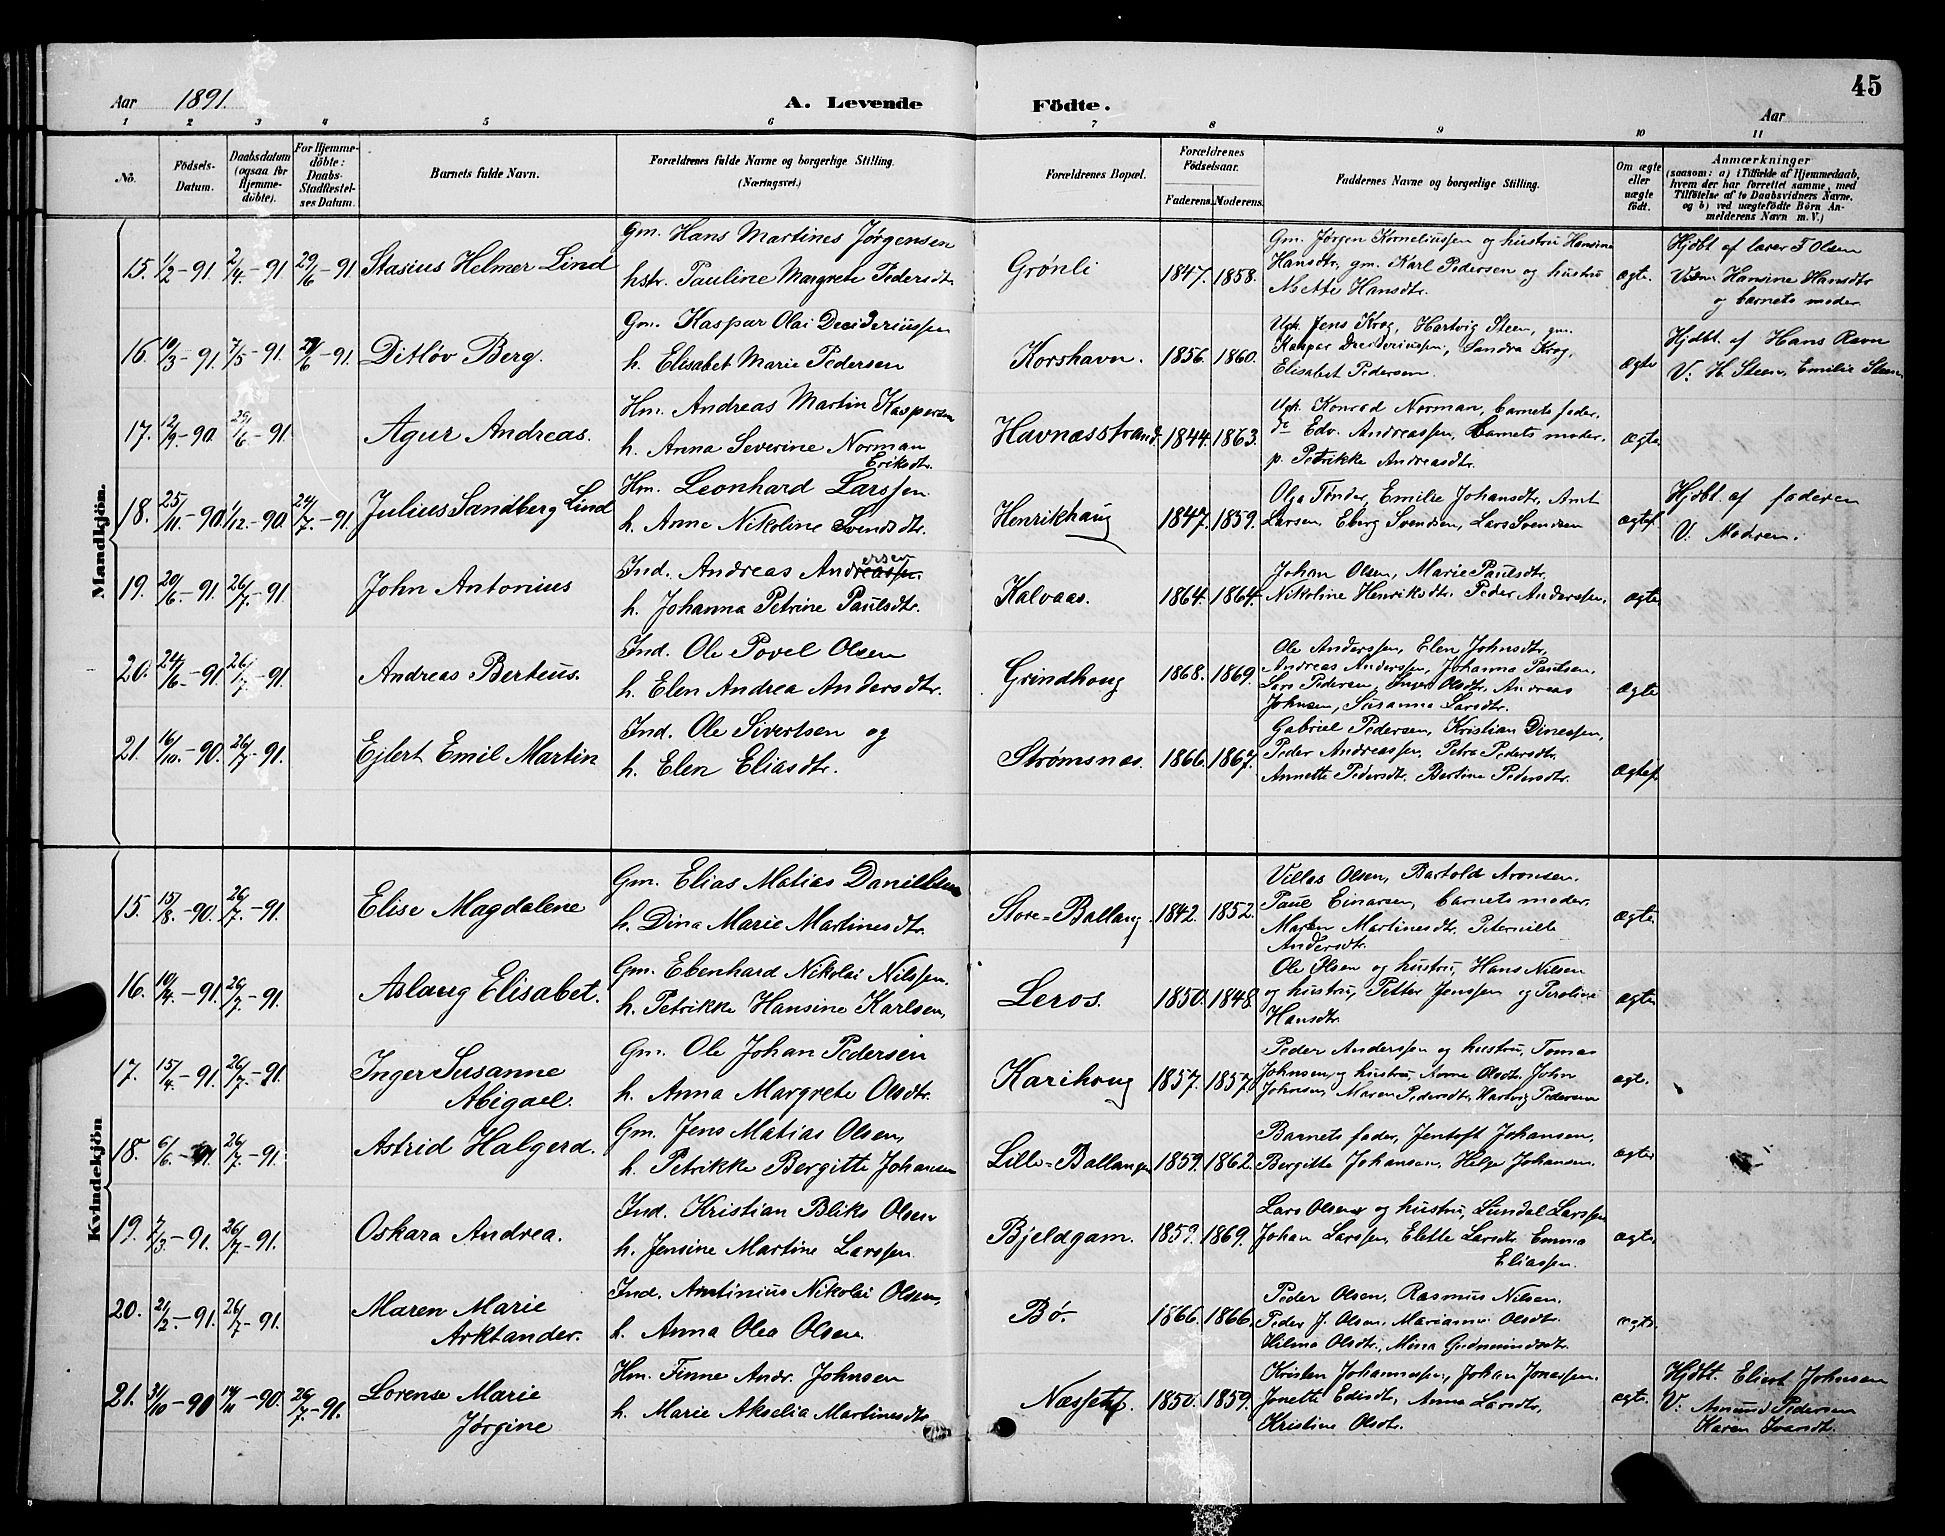 45
Aar 1891. A. Levende Födte. Aar
1 2 3 4 5 6 7 8 9 10 11
No.
Födsels-Datum.
Daabsdatum (ogsaa for Hjemmedöbte).
For Hjemmedöbte: Daabs-Stadfæstelses Datum.
Barnets fulde Navn.
Forældrenes fulde Navne og borgerlige Stilling. (Næringsvei.)
Forældrenes Bopæl.
Forældrenes Födselsaar.
Faderens. Moderens.
Faddernes Navne og borgerlige Stilling.
Om ægte eller uægte födt.
Anmærkninger (saasom: a) i Tilfælde af Hjemmedaab, hvem der har forrettet samme, med Tilföielse af to Daabsvidners Navne, og b) ved uægtefödte Börn Anmelderens Navn m. V.)
Mandkjön.
15. 1/2-91 2/4-91 29/6-91 Stasius Helmer Lind
Gm. Hans Martines Jørgensen
hstr. Pauline Margrete Pedersdtr
Grønli 1847. 1858.
Gm. Jørgen Korneliussen og hustru Hansine
Hansdtr, gm. Karl Pedersen og hustru
Nette Hansdtr.
ægte.
Hjdbt af lærer T Olsen
Vidn: Hansine Hansdtr
og barnets moder.
16. 19/3-91. 7/5-91. 29/6-91. Ditløv Berg.
Gm. Kaspar Olai Desideriussen
h. Elisabet Marie Pedersen
Korshavn. 1856. 1860.
Ugk. Jens Krog, Hartvig Steen, gm.
Kaspar Desideriussen, Sandra Krog,
Elisabet Pedersen.
ægte
Hjdbt. af Hans Ravn
V: H. Steen, Emilie Steen
17. 12/9-90. 29/6-91. Agur Andreas.
Hm. Andreas Martin Kaspersen
h. Anna Severine Norman
Eriksdtr.
Havnæsstrand. 1844. 1863.
Ugk. Konrad Norman, barnets fader,
Edv. Andreassen, Barnets moder.
p. Petrikke Andreasdtr.
ægte.
18. 25/11-90. 1/12-90. 24/7-91. Julius Sandberg Lind
Hm. Leonhard Larssen
h. Anne Nikoline Svendsdtr.
Henrikhaug 1847. 1859.
Olga Tønder, Emilie Johansdtr, Arnt
Larsen, Eberg Svendsen, Lars Svendsen
ægtef.
Hjdbt. af faderen
V: Modren.
19. 20/6-91. 26/7-91. John Antonius
Ind. Andreas Andreassen. ersen
h. Johanna Petrine Paulsdtr.
Kalvaas. 1864. 1864.
Johan Olsen, Marie Paulsdtr.
Nikoline Henriksdtr. Peder Anderssen.
ægte
20. 24/6-91. 26/7-91. Andreas Berteus.
Ind. Ole Povel Olsen
h. Elen Andrea Andersdtr.
Grindhoug 1868. 1869.
Ole Anderssen, Elen Johnsdtr,
Andreas Anderssen, Johanna Paulsen,
Lars Pedersen, Inger Olsdtr, Andreas
Johnsen, Susanna Larsdtr.
ægte
21. 16/10-90. 26/7-91. Ejlert Emil Martin
Ind. Ole Sivertsen og
h. Elen Eliasdtr.
Strømsnæs. 1866. 1867.
Gabriel Pedersen, Kristian Dinessen,
Peder Andreassen, Petra Pedersdtr.
Annette Pedersdtr. Bertine Pedersdtr.
ægtef.
Kvindekjön
15. 15/8-90. 26/7-91. Elise Magdalene
Gm. Elias Matias Daniellsen
h. Dina Marie Martinesdtr.
Store-Ballang. 1842. 1852.
Villas Olsen, Bartold Aronsen.
Paul Einarsen, barnets moder.
Maren Martinesdtr. Peternille
Andersdtr.
ægte
16. 19/4-91. 26/7-91. Aslaug Elisabet.
Gm. Ebenhard Nikolai Nilssen.
h. Petrikke Hansine Karlsen,
Leros. 1850. 1848.
Ole Olsen og hustru, Hans Nilsen
og hustru, Petter Jenssen og Peroline
Hansdtr.
ægte
17. 15/4-91. 26/7-91. Inger Susanne
Abigael.
Gm. Ole Johan Pedersen
h. Anna Margrete Olsdtr.
Karihoug 1857. 1857.
Peder Anderssen og hustru, Tomas
Johnsen, og hustru, Anne Olsdtr. John
Johnsen, Maren Pedersdtr, Hartvig Pedersen
ægte.
18. 6/6-91. 26/7-91. Astrid Halgerd.
Gm. Jens Matias Olsen,
h. Petrikke Bergitte Johansen
Lille-Ballangen 1859. 1862.
Barnets fader, Jentoft Johansen,
Bergitte Johansen, Helge Johansen.
ægte
19. 7/3-91. 26/7-91. Oskara Andrea.
Ind. Kristian Bliks Olsen
h. Jensine Martine Larssen.
Bjeldgam. 1859. 1869.
Lars Olsen og hustru, Lundal Larssen
Johan Larssen, Elette Larsdtr. Emma
Eliassen.
ægte.
20. 21/2-91. 26/7-91. Maren Marie
Arktander.
Ind. Antinius Nikolai Olsen,
h. Anna Olea Olsen.
Bø. 1866. 1866.
Peder Olsen, Rasmus Nilsen.
Peder J. Olsen, Marianne Olsdtr.
Hilma Olsdtr, Mina Gudmundsdtr.
ægte.
21. 31/10-90 14/11-90. 26/7-91. Lorense Marie
Jørgine
Hm. Finne Andr. Johnsen
h. Marie Akselia Martinesdtr
Næsset. 1850. 1859.
Kristen Johannessen, Johan Jonassen.
Jonette Edisdtr, Anna Larsdtr,
Kristine Olsdtr.
ægte.
Hjdbt. Eliert Johnsen
V: Amund Pedersen
Karen Ivarsdtr.